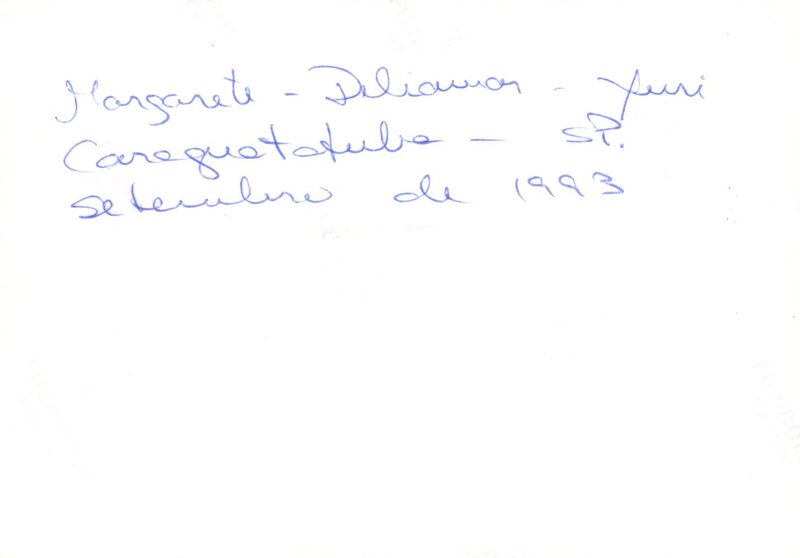 Margarete - Deliamar - Yuri
Caraguatatuba - SP.
Setembro de 1993